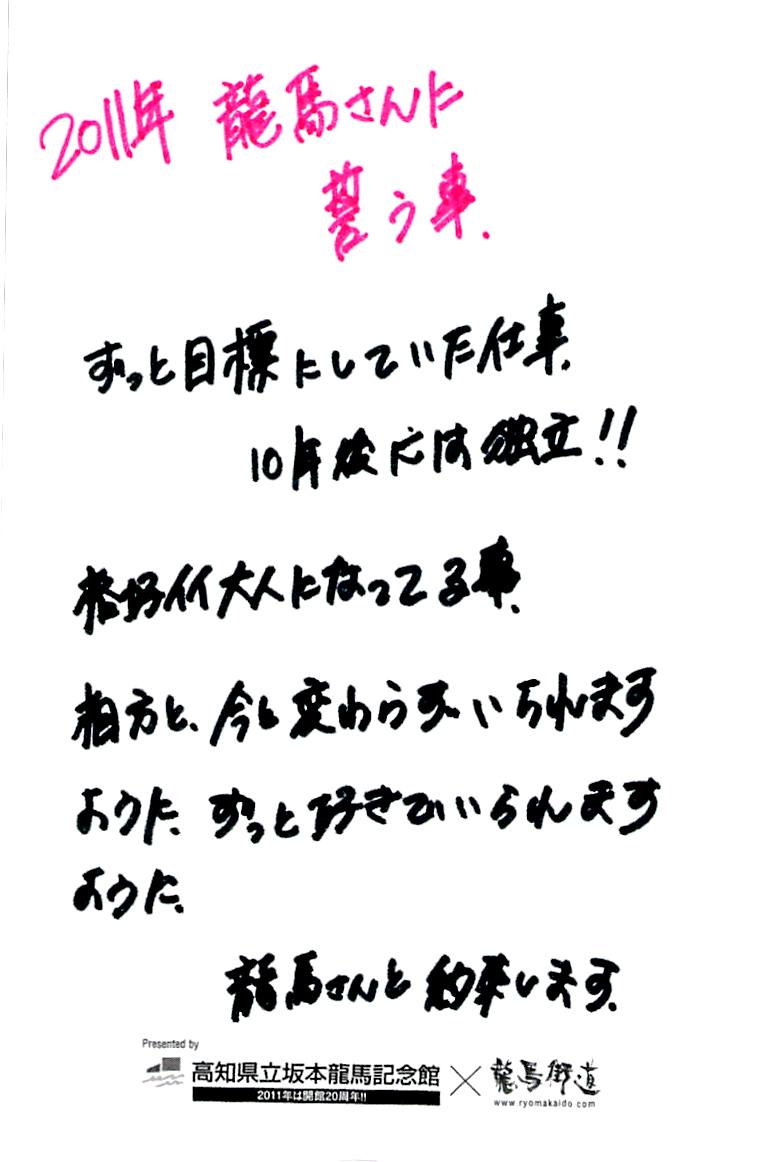 2011年 龍馬さんに
誓う事.
ずっと目標にしていた仕事.
10年後には独立!!
格好イイ大人になってる事.
相方と、今と変わらずいられます
ように、ずっと好きでいられます
ように、
龍馬さんと約束します.
Presented by
高知県立坂本龍馬記念館 × 龍馬街道
2011年は開館20周年!!
www.ryomakaido.com